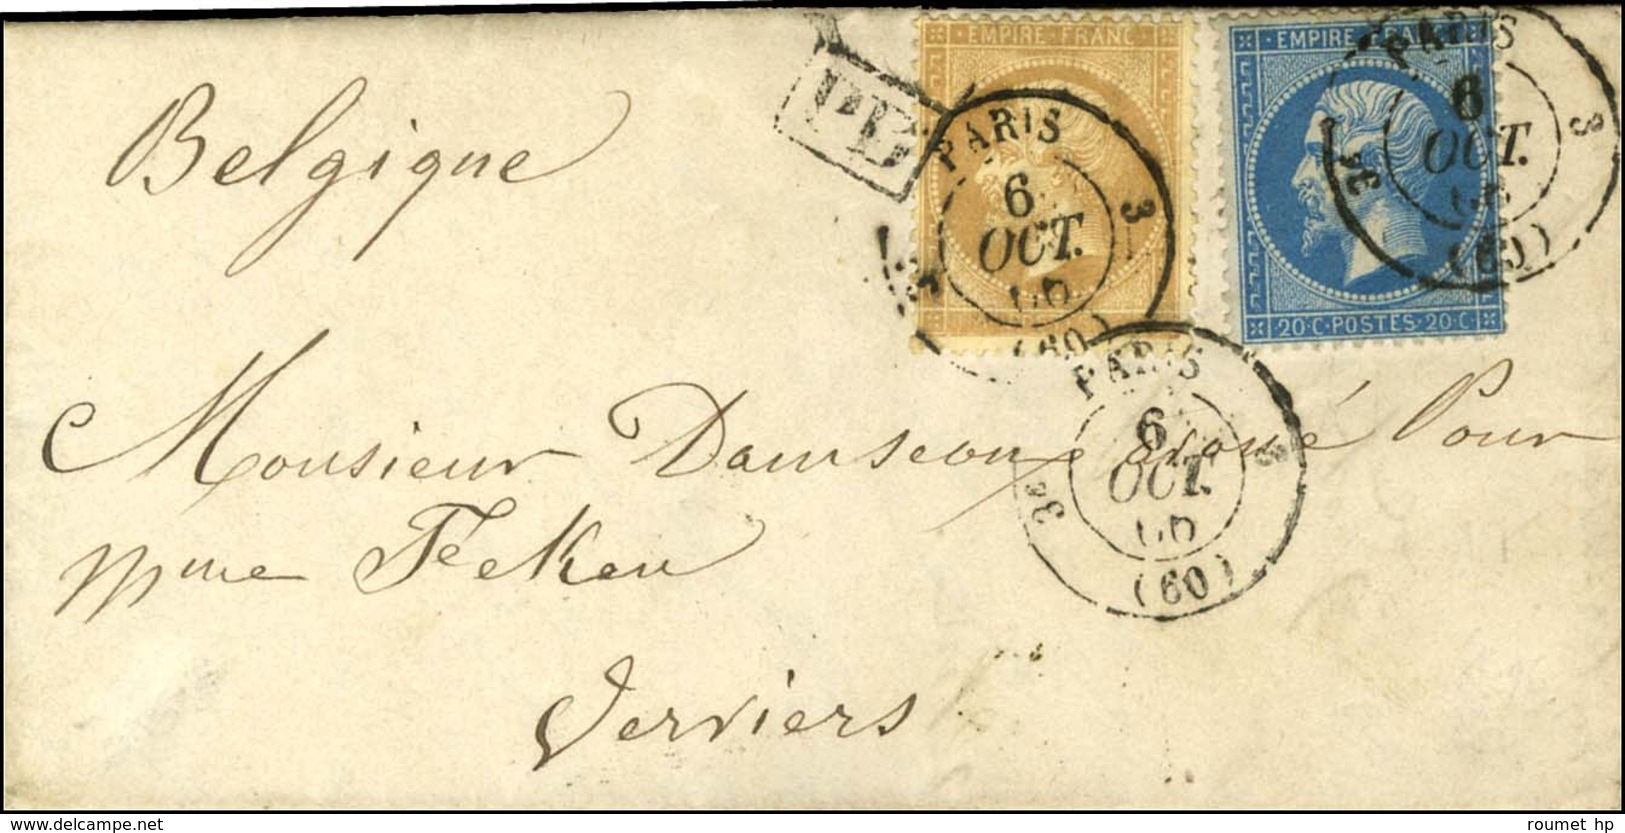 EMPIRE FRANC
EMPIRE FRANC
PD
Belgique
PARIS
3
6
OCT.
66
(60)
PARIS
3
3e
6
OCT.
66
(60)
20·C·POSTES·20·C
PARIS
3e
6
OCT.
66
(60)
Monsieur Damseaux Pour
Mme
Verviers
delcampe.net
roumet hp